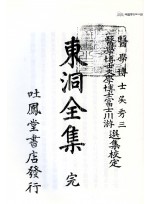 醫學博士吳秀三
醫學博士文學博士富士川游 選集校定
東洞全集 完
吐鳳堂書店發行